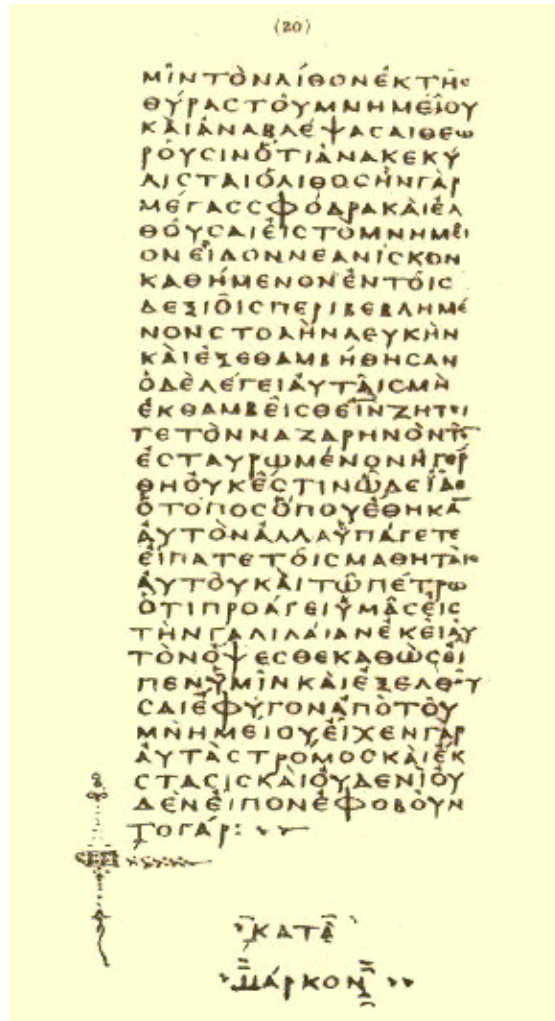 (20)
ΜΙΝΤΟΝΛΙΘΟΝΕΚΤΗϹ
ΘΥΡΑϹΤΟΥΜΝΗΜΕΙΟΥ
ΚΑΙΑΝΑΒΛΕΨΑϹΑΙΘΕΩ
ΡΟΥϹΙΝΟΤΙΑΝΑΚΕΚΥ
ΛΙϹΤΑΙΟΛΙΘΟϹΗΝΓΑΡ
ΜΕΓΑϹϹΦΟΔΡΑΚΑΙΕΛ
ΘΟΥϹΑΙΕΙϹΤΟΜΝΗΜΕΙ
ΟΝΕΙΔΟΝΝΕΑΝΙϹΚΟΝ
ΚΑΘΗΜΕΝΟΝΕΝΤΟΙϹ
ΔΕΞΙΟΙϹΠΕΡΙΒΕΒΛΗΜΕ
ΝΟΝϹΤΟΛΗΝΛΕΥΚΗΝ
ΚΑΙΕΞΕΘΑΜΒΗΘΗϹΑΝ
ΟΔΕΛΕΓΕΙΑΥΤΑΙϹΜΗ
ΕΚΘΑΜΒΕΙϹΘΕΙΝΖΗΤΕΙ
ΤΕΤΟΝΝΑΖΑΡΗΝΟΝΤΟ
ΕϹΤΑΥΡΩΜΕΝΟΝΗΓΕΡ
ΘΗΟΥΚΕϹΤΙΝΩΔΕΙΔΕ
ΟΤΟΠΟϹΟΠΟΥΕΘΗΚΑ̅
ΑΥΤΟΝΑΛΛΑΥΠΑΓΕΤΕ
ΕΙΠΑΤΕΤΟΙϹΜΑΘΗΤΑΙϹ
ΑΥΤΟΥΚΑΙΤΩΠΕΤΡΩ
ΟΤΙΠΡΟΑΓΕΙΥΜΑϹΕΙϹ
ΤΗΝΓΑΛΙΛΑΙΑΝΕΚΕΙΑΥ
ΤΟΝΟΨΕϹΘΕΚΑΘΩϹΕΙ
ΠΕΝΥΜΙΝΚΑΙΕΞΕΛΘΟΥ
ϹΑΙΕΦΥΓΟΝΑΠΟΤΟΥ
ΜΝΗΜΕΙΟΥΕΙΧΕΝΓΑΡ
ΑΥΤΑϹΤΡΟΜΟϹΚΑΙΕΚ
ϹΤΑϹΙϹΚΑΙΟΥΔΕΝΙΟΥ
ΔΕΝΕΙΠΟΝΕΦΟΒΟΥΝ
ΤΟΓΑΡ:
ΚΑΤΑ
ΜΑΡΚΟΝ